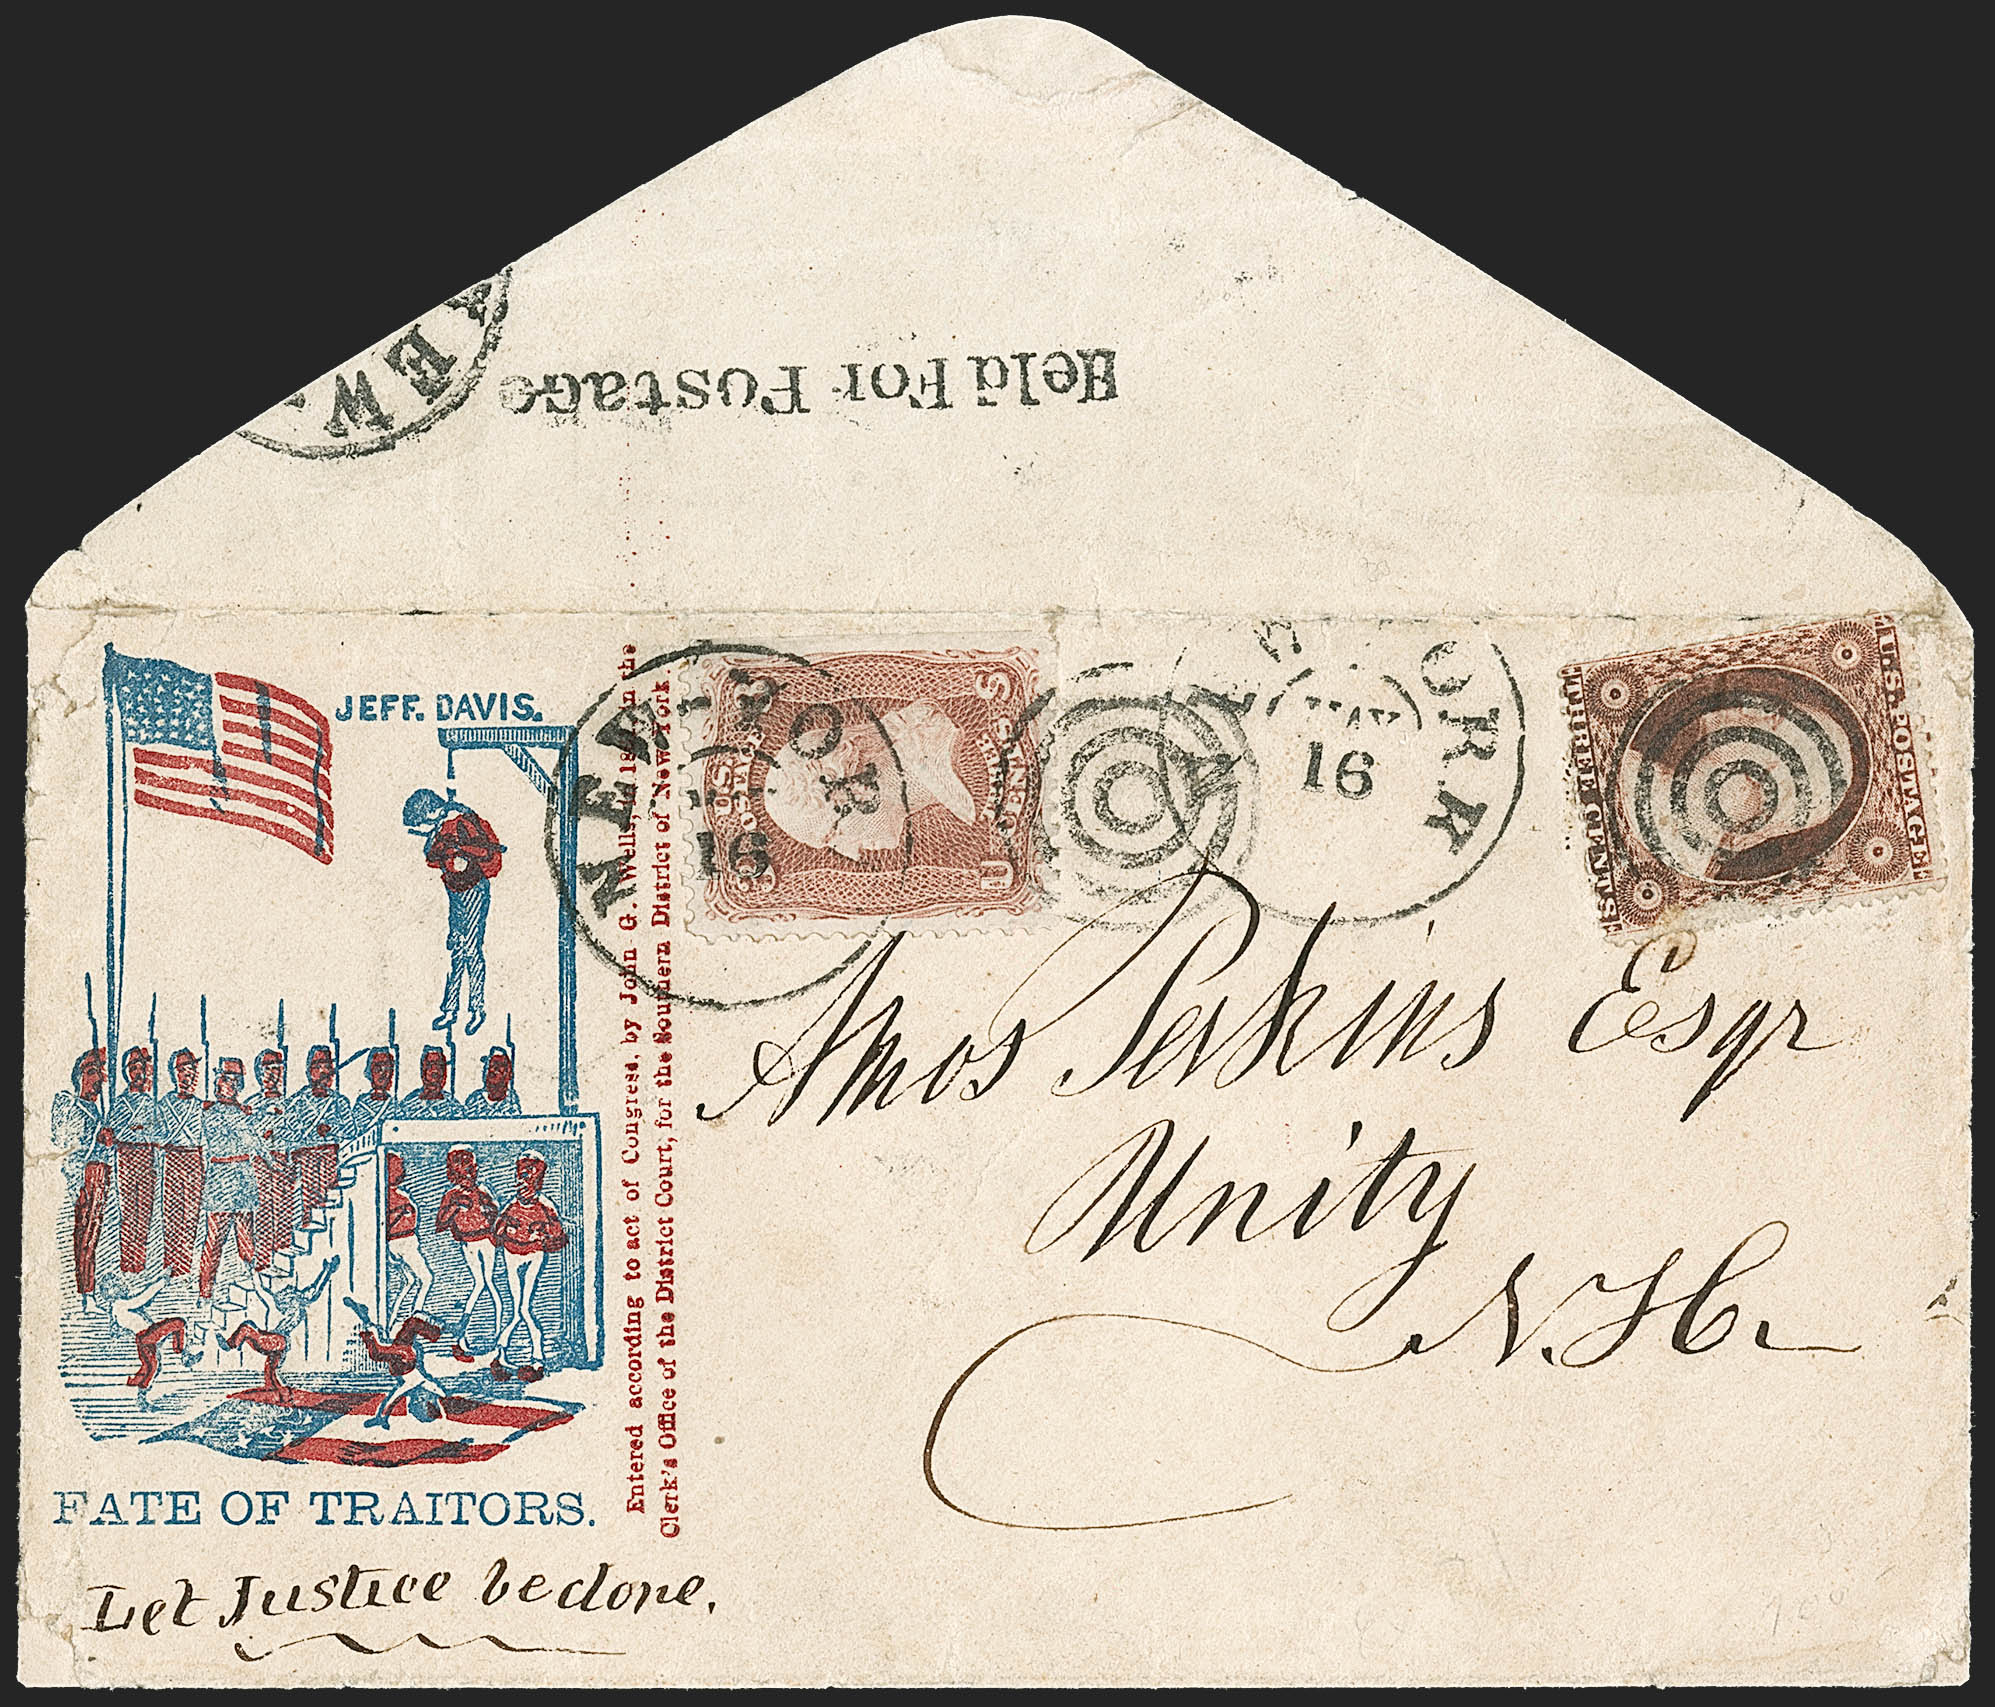 Held For Postage
NEW
JEFF. DAVIS.
FATE OF TRAITORS.
Let Justice be done.
Entered according to act of Congress, by John G. Wells, in the
Clerk's Office of the District Court, for the Southern District of New York.
NEW YOR
16
U.S. POSTAGE
THREE CENTS
3
U S
YORK
16
U.S. POSTAGE
THREE CENTS
Amos Perkins Esqr
Unity
N.H.